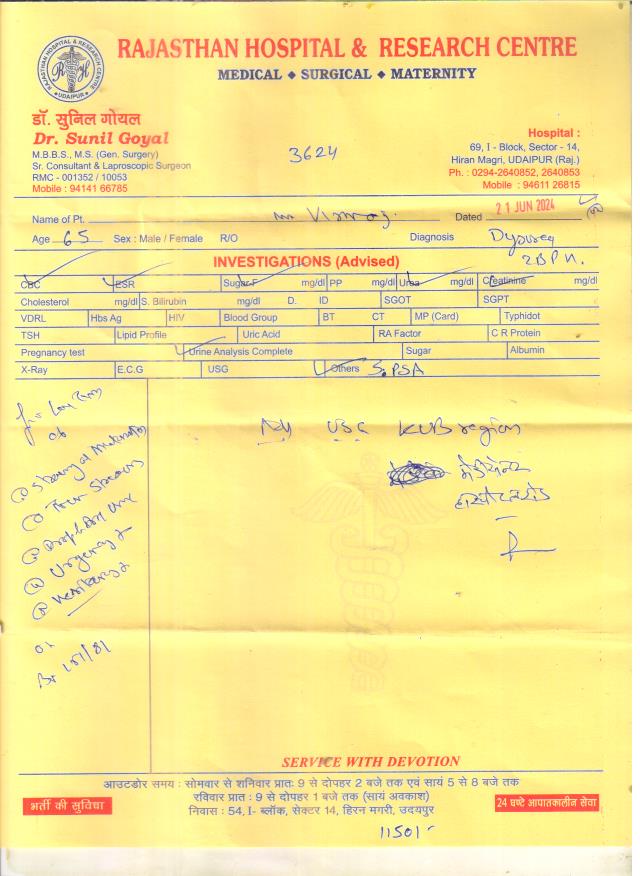 RAJASTHAN HOSPITAL & RESEARCH CENTRE
UDAIPUR
RAJASTHAN HOSPITAL & RESEARCH CENTRE
MEDICAL ◆ SURGICAL ◆ MATERNITY
डॉ. सुनिल गोयल
Dr. Sunil Goyal
M.B.B.S., M.S. (Gen. Surgery)
Sr. Consultant & Laproscopic Surgeon
RMC - 001352 / 10053
Mobile : 94141 66785
3624
Hospital :
69, I - Block, Sector - 14,
Hiran Magri, UDAIPUR (Raj.)
Ph. : 0294-2640852, 2640853
Mobile : 94611 26815
Name of Pt. Mr Dated 21 JUN 2024
Age 65 Sex : Male / Female R/O Diagnosis
INVESTIGATIONS (Advised)
CBC ESR Sugar-F mg/dl PP mg/dl Urea mg/dl Creatinine mg/dl
Cholesterol mg/dl S. Bilirubin mg/dl D. ID SGOT SGPT
VDRL Hbs Ag HIV Blood Group BT CT MP (Card) Typhidot
TSH Lipid Profile Uric Acid RA Factor C R Protein
Pregnancy test Urine Analysis Complete Sugar Albumin
X-Ray E.C.G USG Others S. PSA
USG KUB region
Urgency
SERVICE WITH DEVOTION
आउटडोर समय : सोमवार से शनिवार प्रातः 9 से दोपहर 2 बजे तक एवं सायं 5 से 8 बजे तक
रविवार प्रात : 9 से दोपहर 1 बजे तक (सायं अवकाश)
निवास : 54, I- ब्लॉक, सेक्टर 14, हिरन मगरी, उदयपुर
भर्ती की सुविधा
24 घण्टे आपातकालीन सेवा